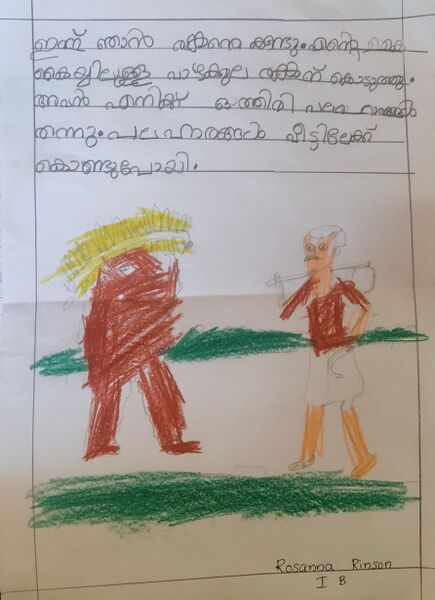 ഇന്ന് ഞാൻ രങ്കനെ കണ്ടു. എന്റെ കൈ
കൈയ്യിലുള്ള പാഴക്കുല രങ്കന് കൊടുത്തു.
അവൻ എനിക്ക് ഒത്തിരി പലഹാരങ്ങൾ
തന്നു. പലഹാരങ്ങൾ വീട്ടിലേക്ക്
കൊണ്ടുപോയി.
Rosanna Rinson
I B